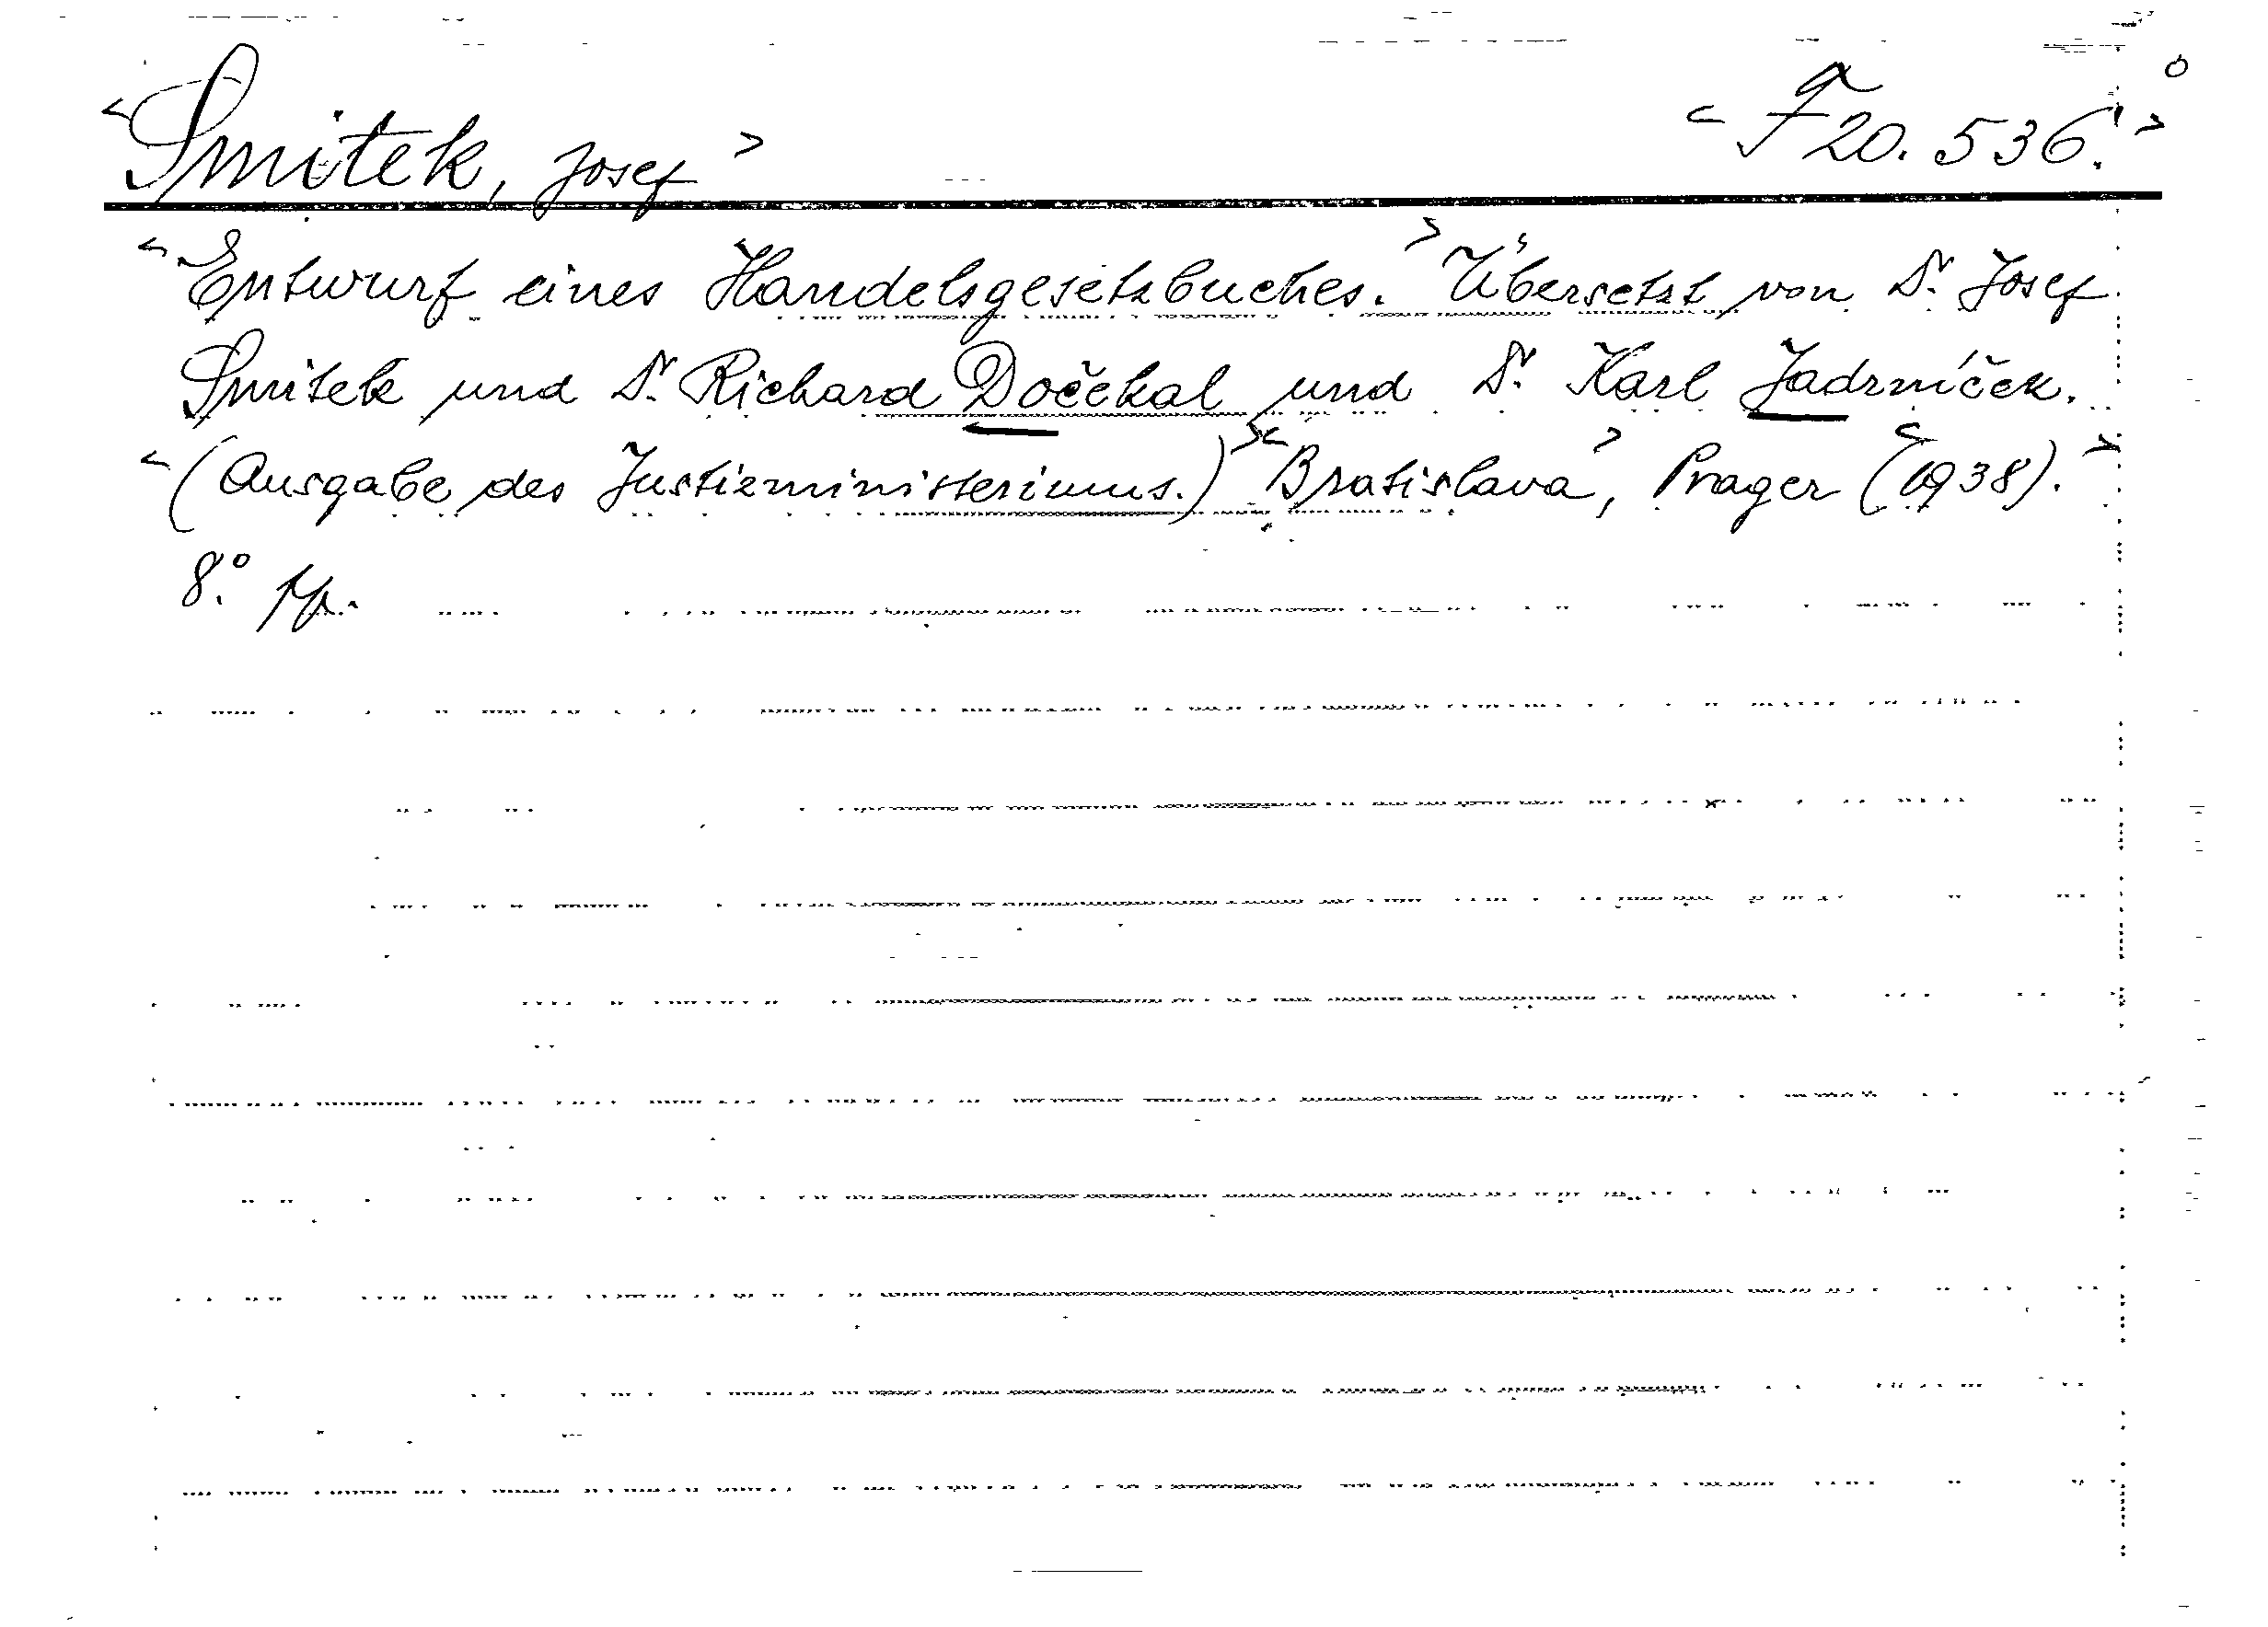 <Smitek, Josef> <F 20.536.>
<Entwurf eines Handelsgesetzbuches.> Übersetzt von Dr. Josef
Smitek und Dr. Richard Dočekal und Dr. Karl Jadrníček.
<(Ausgabe des Justizministeriums.)> <Bratislava>, Prager (<1938).>
8°.